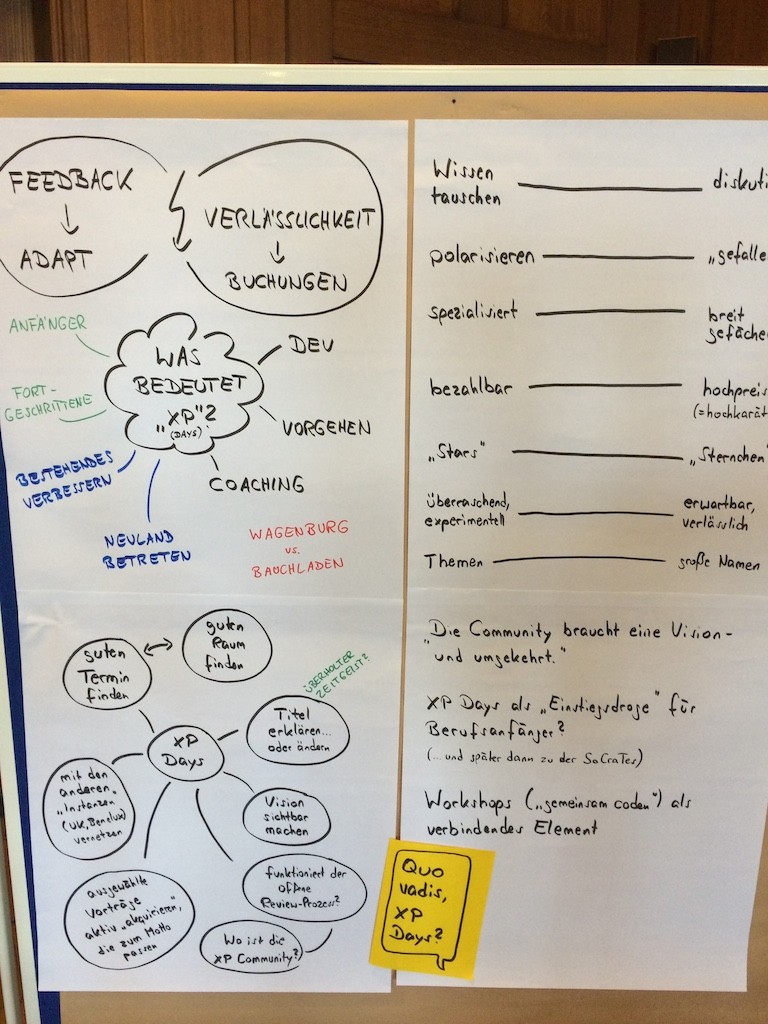 FEEDBACK
ADAPT
VERLÄSSLICHKEIT
BUCHUNGEN
ANFÄNGER
FORT-
GESCHRITTENE
BESTEHENDES
VERBESSERN
NEULAND
BETRETEN
WAS
BEDEUTET
„XP"?
(DAYS)
DEV
VORGEHEN
COACHING
WAGENBURG
vs.
BAUCHLADEN
guten
Termin
finden
guten
Raum
finden
ÜBERHOLTER
ZEITGEIST?
Titel
erklären...
oder ändern
XP
Days
mit den
anderen
„Instanzen"
(UK, Benelux)
vernetzen
Vision
sichtbar
machen
ausgewählte
Vorträge
aktiv „akquirieren",
die zum Motto
passen
funktioniert der
offene
Review-Prozess?
Wo ist die
XP Community?
Wissen
tauschen
diskuti
polarisieren
„gefalle
spezialisiert
breit
gefäche
bezahlbar
hochpreis
(=hochkarät
„Stars"
„Sternchen"
überraschend,
experimentell
erwartbar,
verlässlich
Themen
große Namen
„Die Community braucht eine Vision -
und umgekehrt."
XP Days als „Einstiegsdroge" für
Berufsanfänger?
(... und später dann zu der SoCraTes)
Workshops („gemeinsam coden") als
verbindendes Element
Quo
vadis,
XP
Days?